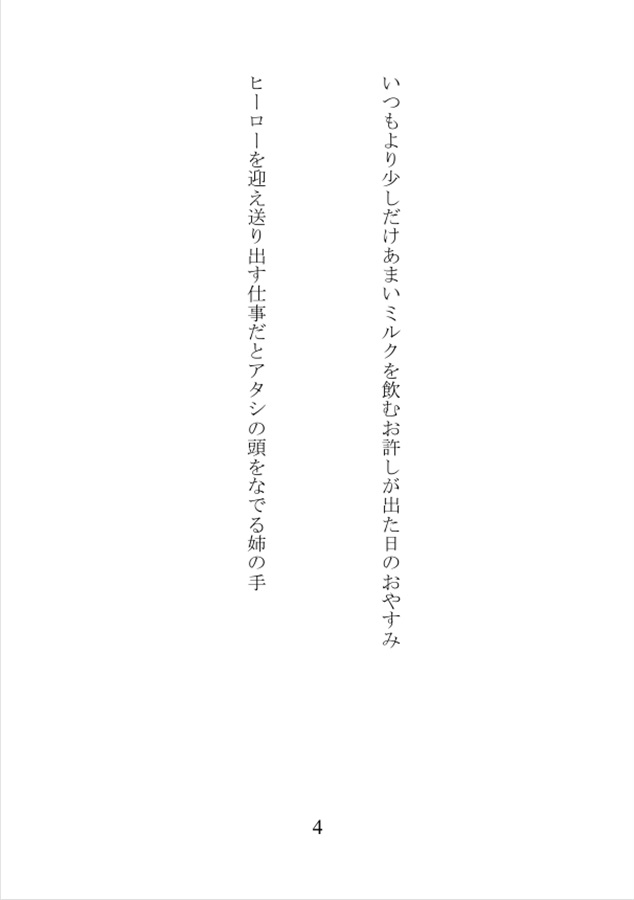 いつもより少しだけあまいミルクを飲むお許しが出た日のおやすみ
ヒーローを迎え送り出す仕事だとアタシの頭をなでる姉の手
4